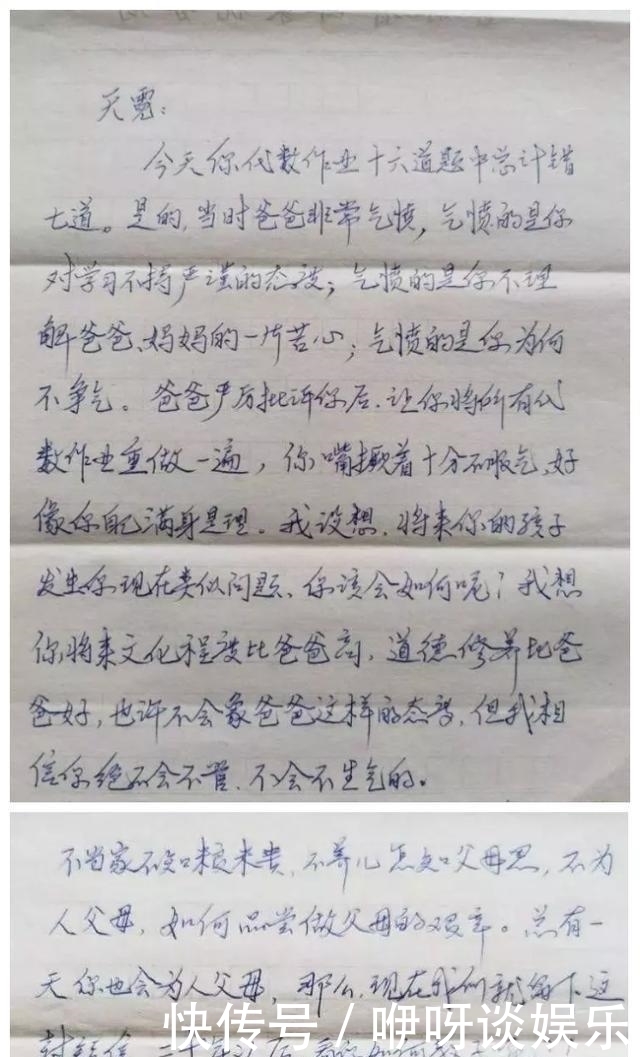 天霓:
今天你代数作业十六道题中总计错
七道。是的,当时爸爸非常气愤,气愤的是你
对学习不持严谨的态度;气愤的是你不理
解爸爸、妈妈的一片苦心;气愤的是你为何
不争气。爸爸严厉批评你后,让你将所有代
数作业重做一遍,你嘴撅着十分不服气,好
像你自己满身是理。我设想,将来你的孩子
发生你现在类似问题、你该会如何呢?我想
你将来文化程度比爸爸高,道德修养比爸
爸好,也许不会象爸爸这样的态度,但我相
信你绝不会不管、不会不生气的。
不当家不知柴米贵,不养儿怎知父母恩,不为
人父母,如何品尝做父母的艰辛。总有一
天你也会为人父母,那么,现在我们就留下这
封
快传号 / 咿呀谈娱乐